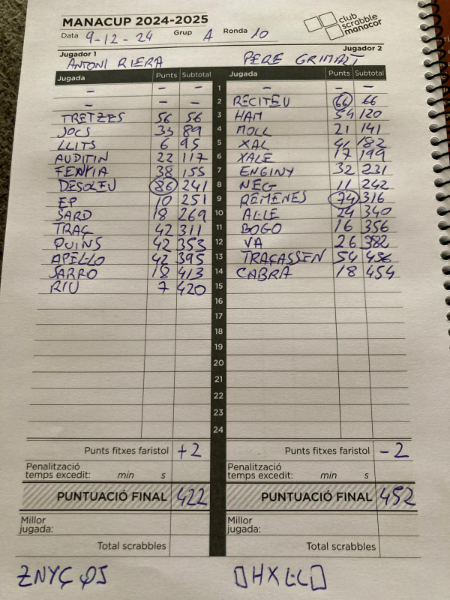 MANACUP 2024-2025
club scrabble manacor
Data 9-12-24 Grup A Ronda 10
Jugador 1 Jugador 2
ANTONI RIERA PERE GRIMALT
Jugada Punts Subtotal Jugada Punts Subtotal
– – 1 – –
– – 2 RECITEU 66 66
TRETZES 56 56 3 HAM 54 120
JOCS 33 89 4 MOLL 21 141
LLITS 6 95 5 XAL 41 182
AUDITIN 22 117 6 XALE 17 199
FENYIA 38 155 7 ENGINY 32 231
DESOLEU 86 241 8 NEG 11 242
EP 10 251 9 REMENES 74 316
SARD 18 269 10 ALLE 24 340
TRAÇ 42 311 11 BOGO 16 356
QUINS 42 353 12 VA 26 382
APEL·LO 42 395 13 TRAÇASSEN 54 436
SARRO 18 413 14 CABRA 18 454
RIU 7 420 15
16
17
18
19
20
21
22
23
24
Punts fitxes faristol +2 Punts fitxes faristol -2
Penalització temps excedit: min s Penalització temps excedit: min s
PUNTUACIÓ FINAL 422 PUNTUACIÓ FINAL 452
Millor jugada: Millor jugada:
Total scrabbles Total scrabbles